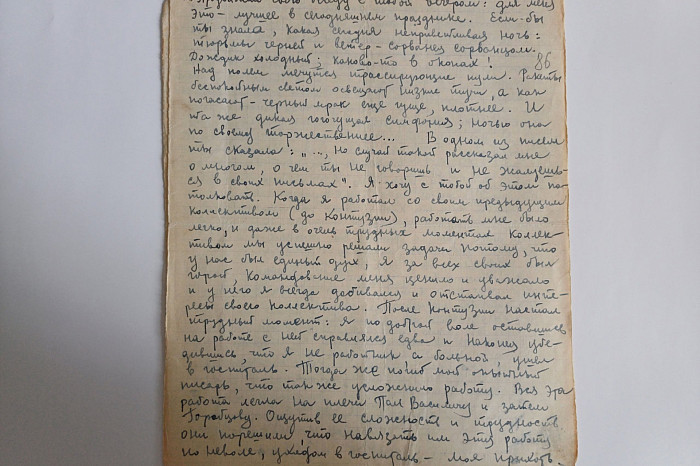 свою беседу с тобой вечером: для меня
это - лучшее в сегодняшнем празднике. Если-бы
ты знала, какая сегодня неприветливая ночь:
тюрьмы черней и ветер - сорванец сорванцом.
Дождик холодный; каково-то в окопах! 86
Над полем мечутся трассирующие пули. Ракеты
беспокойным светом освещают низкие тучи, а как
погасает - черный мрак еще гуще, плотнее. И
та же дикая гогочущая симфония; ночью она
по своему торжественнее... В одном из писем
ты сказала: "..., но случай такой рассказал мне
о многом, о чем ты не говоришь и не жалуешь-
ся в своих письмах". Я хочу с тобой об этом по-
толковать. Когда я работал со своим предыдущим
коллективом (до контузии), работать мне было
легко, и даже в очень трудных моментах коллек-
тивом мы успешно решали задачи потому, что
у нас был единый дух, я за всех своих был
горой, командование меня ценило и уважало
и у него я всегда добивался и отстаивал инте-
ресы своего коллектива. После контузии настал
трудный момент: я по доброй воле оставшись
на работе с ней справлялся едва и наконец убе-
дившись, что я не работник а больной, ушел
в госпиталь. Тогда же погиб мой опытный
писарь, что также усложнило работу. Вся эта
работа легла на плечи Пал Васильичу и затем
Горобцову. Ощутив ее сложность и трудность
они порешили, что навязать им эту работу
по неволе, уходом в госпиталь - моя прихоть.